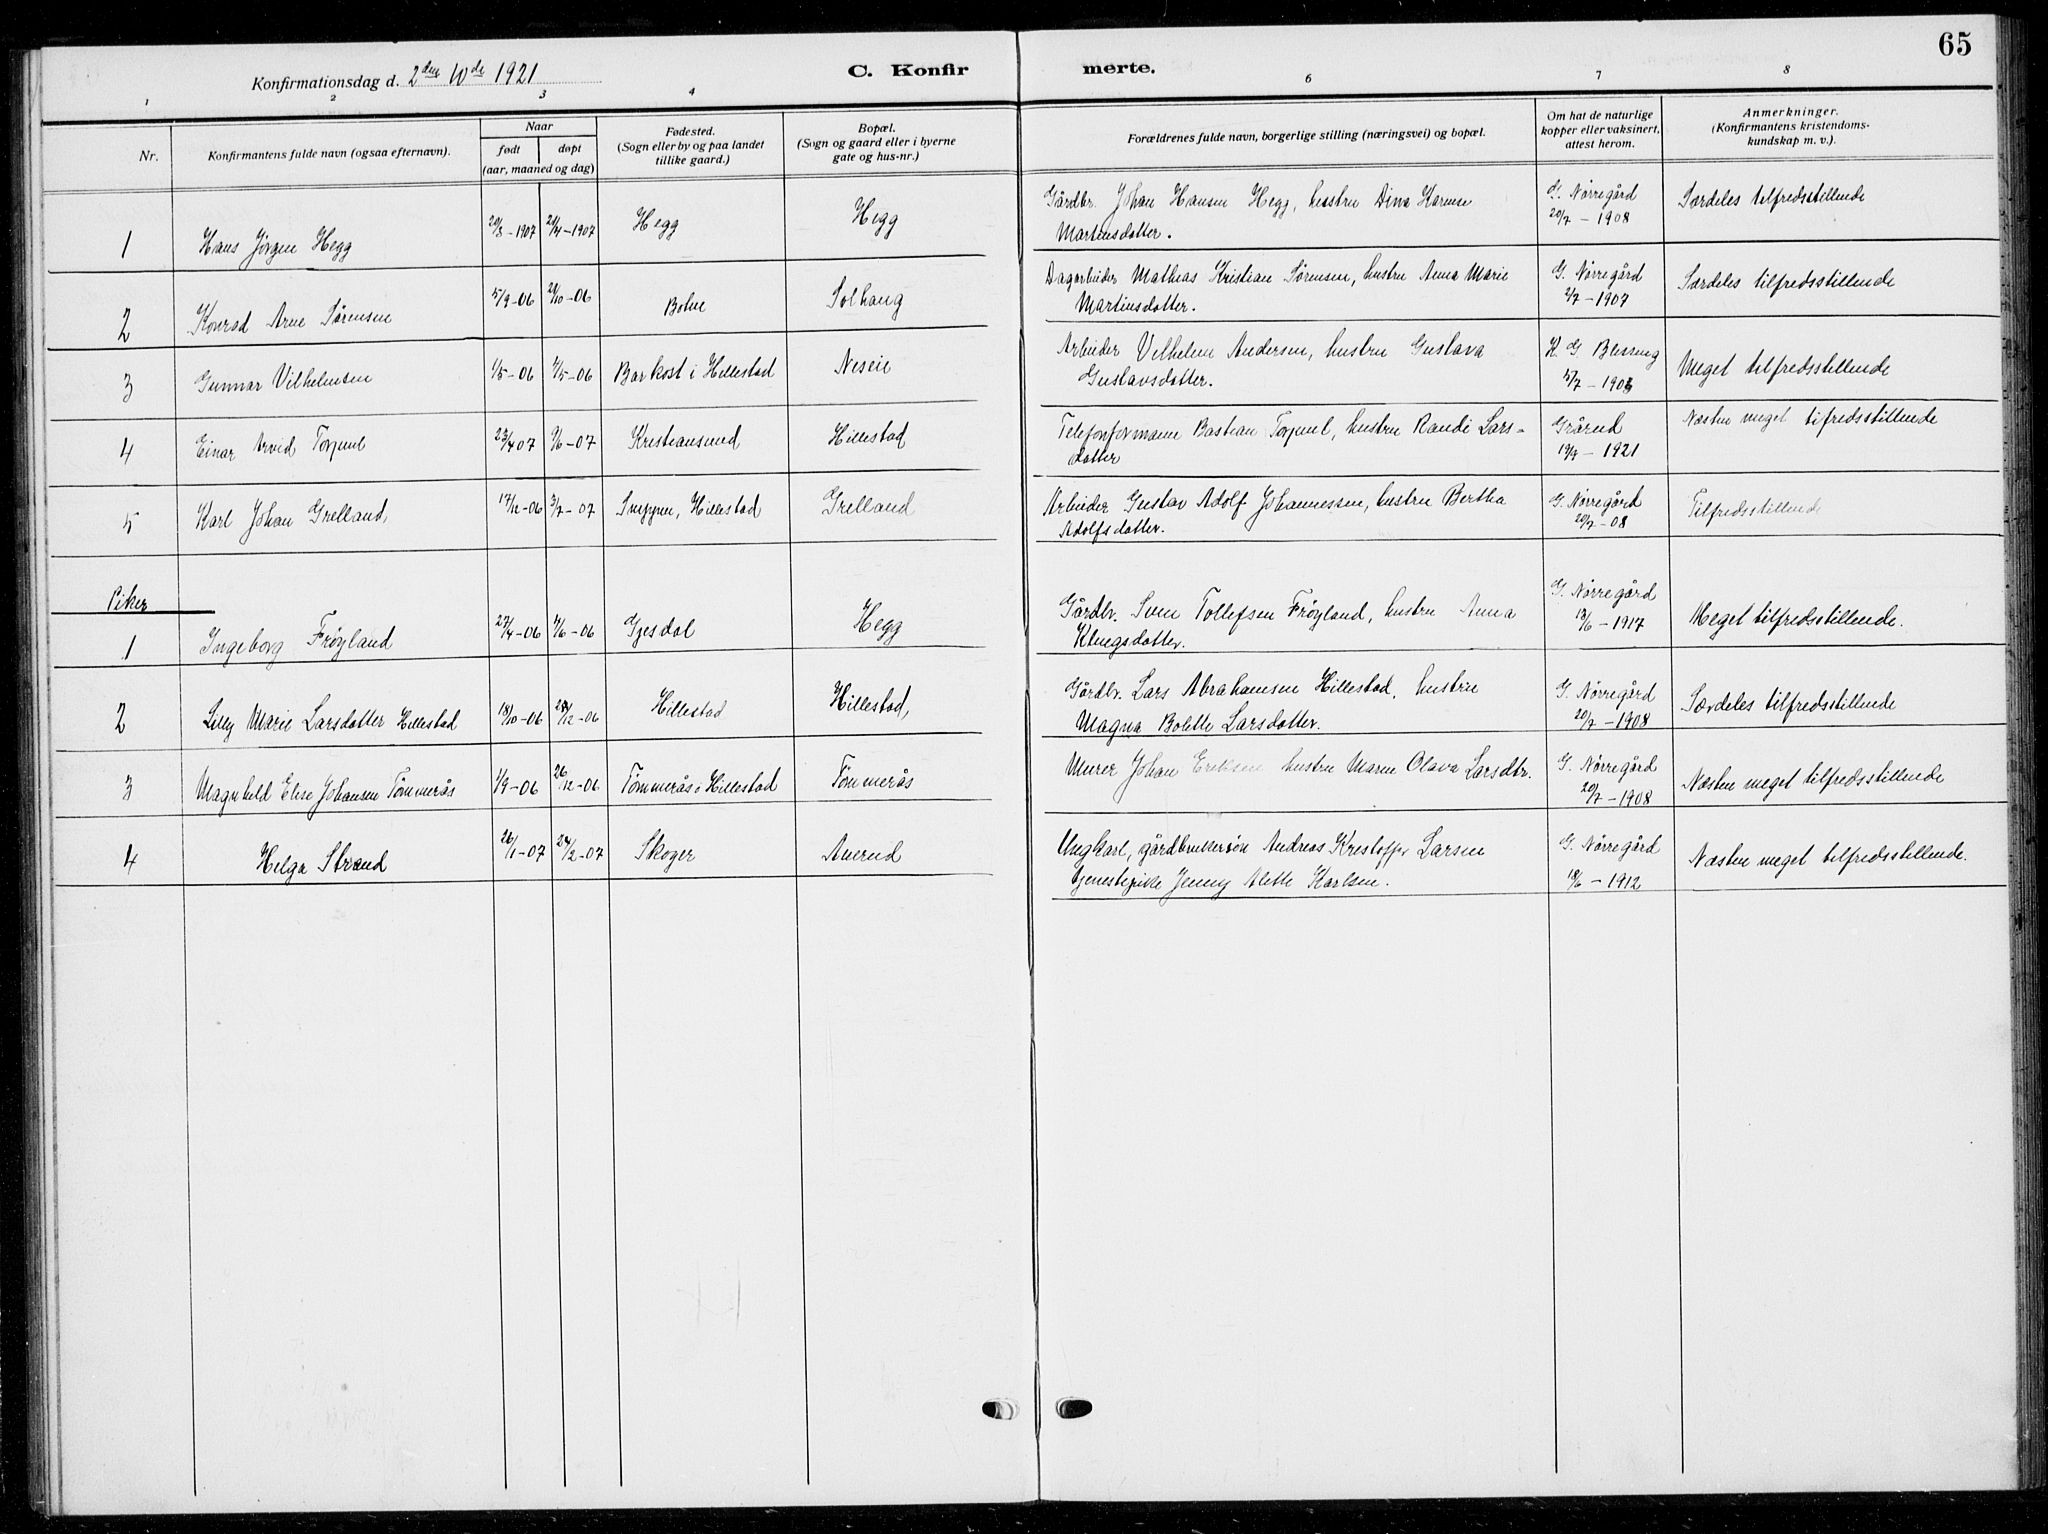 65
Konfirmationsdag d. 2den 10de 1921
C. Konfirmerte.
1 2 3 4 6 7 8
Nr.
Konfirmantens fulde navn (ogsaa efternavn).
Naar
født
døpt
(aar, maaned og dag)
Fødested.
(Sogn eller by og paa landet
tillike gaard.)
Bopæl.
(Sogn og gaard eller i byerne
gate og hus-nr.)
Forældrenes fulde navn, borgerlige stilling (næringsvei) og bopæl.
Om hat de naturlige
kopper eller vaksinert,
attest herom.
Anmerkninger.
(Konfirmantens kristendoms-
kundskap m. v.).
1 Hans Jörgen Hegg 20/3-1907 21/4-1907 Hegg Hegg Gårdbr. Johan Hansen Hegg, hustru Dina Karense
Martinsdatter.
G. Nørregård
20/7 - 1908
Særdeles tilfredsstillende
2 Konrad Arne Sørensen 5/9-06 29/10-06 Botne Solhaug Dagarbeider Mathias Kristian Sørensen, hustru Anna Marie
Martinsdatter.
G. Nørregård
2/7 - 1907
Særdeles tilfredsstillende
3 Gunnar Vilhelmsen 1/5-06 4/5-06 Barkost i Hillestad Neseie Arbeider Vilhelm Andersen, hustru Gustava
Gustavsdatter.
K. G. Blessing
5/7 - 1903
Meget tilfredsstillende
4 Einar Arvid Torjuul 23/4 07 9/6-07 Kristiansund Hillestad Telefonformann Bastian Torjuul, hustru Randi Lars-
datter
Grårud
19/9 - 1921
Næsten meget tilfredsstillende
5 Karl Johan Grelland, 17/12-06 3/7-07 Snippen, Hillestad Grelland Arbeider Gustav Adolf Johannessen, hustru Bertha
Adolfsdatter.
G. Nørregård
20/7-08
Tilfredsstillende
Piker
1 Ingeborg Frøyland 27/4-06 4/6-06 Gjesdal Hegg Gårdbr. Sven Tollefsen Frøyland, hustru Anna
Klungsdatter.
G. Nørregård
13/6 - 1917
Meget tilfredsstillende.
2 Lilly Marie Larsdatter Hillestad 18/10-06 28/12-06 Hillestad Hillestad, Gårdbr. Lars Abrahamsen Hillestad, hustru
Magna Bolette Larsdatter.
G. Nørregård
20/7 - 1908
Særdeles tilfredsstillende
3 Magnhild Elise Johansen Tömmerås 1/9-06 26/12-06 Tömmerås i Hillestad Tömmerås Murer Johan Eriksen hustru Maren Olava Larsdtr.
G. Nørregård
20/7 - 1908
Næsten meget tilfredsstillende
4 Helga Strand 26/1-07 24/2-07 Skoger Auerud Ungkarl, gårdbrukersön Andreas Kristoffer Larsen
tjenestepike Jenny Alette Karlsen.
G. Nørregård
18/6 - 1912
Næsten meget tilfredsstillende.